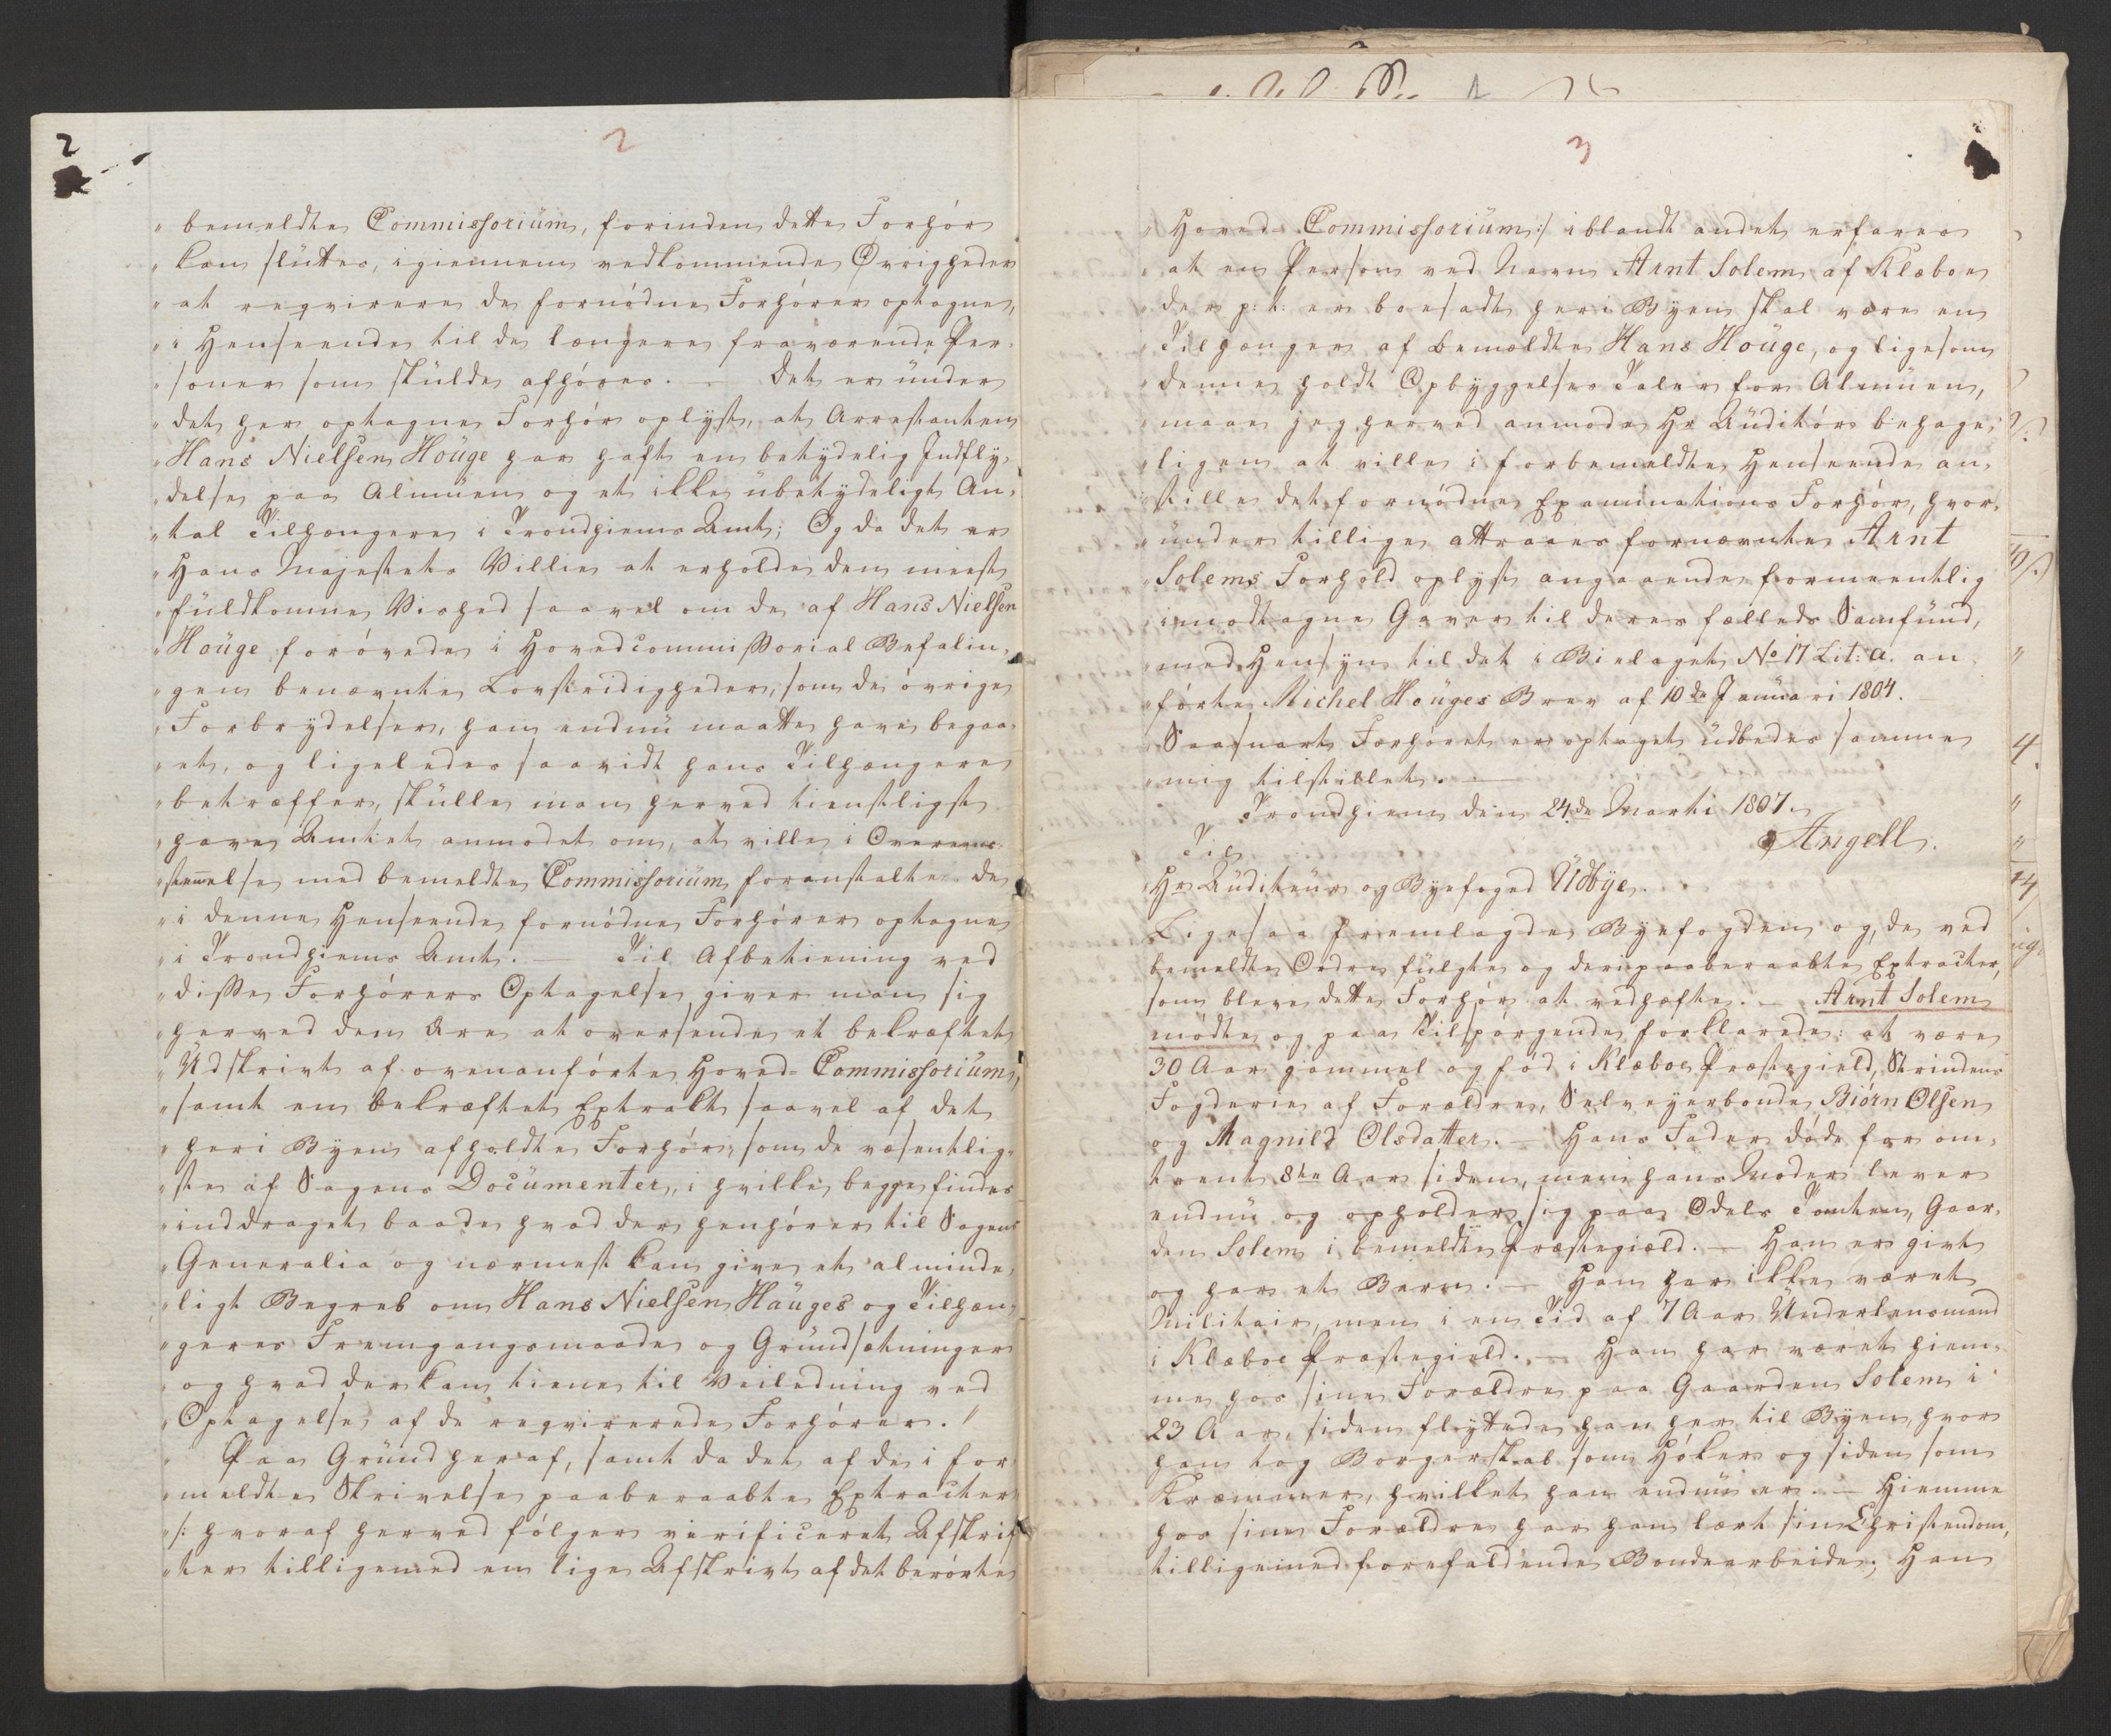 2
2
„ bemeldte Commissorium, forinden dette Forhör
„ kan slüttes, igiennem vedkommende Øvrigheder
„ at reqvirere de fornödne Forhörer optagne,
„ i Henseende til de længere fraværende Per-
„ soner som skülde afhöres. — Det er ünder
„ det her optagne Forhör oplyst, at Arrestanten
„ Hans Nielsen Houge har haft en betydelig Indfly-
„ delse paa Almuen og et ikke übetydeligt An-
„ tal Tilhængere i Trondhiems Amt; Og da det er
„ Hans Majestets Villie at erholde den meest
„ füldkomne Vished saavel om de af Hans Nielsen
„ Houge forövede i Hovedcommissorial Befalin-
„ gen benævnte Lovstridigheder, som de övrige
„ Forbrydelser, han endnü maatte have begaa-
„ et, og ligeledes saavidt hans Tilhængere
„ betræffer, skülle man herved tienstligst
„ have Amtet anmodet om, at ville i Overeens-
„ stemmelse med bemeldte Commissorium foranstalte de
„ i denne Henseende fornödne Forhörer optagne
„ i Trondhiems Amt. — Til Afbetiening ved
„ disse Forhörers Optagelse giver man sig
„ herved den Ære at oversende et bekræftet
„ Udskrivt af ovenanförte Hoved-Commissorium,
„ samt en bekræftet Extrakt saavel af det
„ her i Byen afholdte Forhör, som de væsentlig-
„ ste af Sagens Documenter, i hvilke begge findes
„ inddraget baade hvad der henhörer til Sagens
„ Generalia og nærmest kan give et alminde-
„ ligt Begreb om Hans Nielsen Hauges og Tilhæn-
„ geres Fremgangsmaade og Gründsætninger
„ og hvad der kan tiene til Veiledning ved
„ Optagelse af de reqvirerede Forhörer. "
„ Paa Gründ heraf, samt da det af de i for-
„ meldte Skrivelse paaberaabte Extracter
„ /: hvoraf herved fölger verificeret Afskrif-
„ ter tilligemed en lige Afskrivt af det berörte
3
„ Hoved-Commissorium :/ iblandt andet erfares
„ at en Person ved Navn Arnt Solem af Klæboe
„ der p: t: er boesadt her i Byen skal være en
„ Tilhænger af bemældte Hans Houge, og ligesom
„ denne holdt Opbyggelses Taler for Almüen,
„ maae jeg herved anmode Hr Auditör behage-
„ ligen at ville i forbemeldte Henseende an-
„ stille det fornödne Examinations Forhör, hvor-
„ ünder tillige attraaes fornævnte Arnt
„ Solems Forhold oplyst angaaende formeentlig
„ imodtagne Gaver til deres fælleds Samfünd,
„ med Hensyn til det i Bielaget No 17 Lit: a. an-
„ förte Michel Houges Brev af 10de Januari 1804.
„ Saasnart Forhöret er optaget üdbedes samme
„ mig tilstillet. —
Trondhiem den 24de Marti 1807.
Angell.
Til
„ Hr Auditeur og Byefoged Udbye.
Ligesaa fremlagde Byefogden og, de ved
bemeldte Ordre fülgte og deri paaberaabte Extracter,
som bleve dette Forhör at vedhæfte. — Arnt Solem
mödte og paa Tilspörgende forklarede: at være
30 Aar gammel og föd i Klæboe Præstegield, Strindens
Fogderie af Forældre, Selveyerbonde Biörn Olsen
og Magnild Olsdatter. — Hans Fader döde for om-
trent 8te Aar siden, men hans Moder lever
endnü og opholder sig paa Odels Tomten, Gaar-
den Solem i bemeldte Præstegiæld. — Han er givt
og har et Barn. — Han har ikke været
Militair, men i en Tid af 7 Aar Underlensmand
i Klæboe Præstegield. — Han har været hiem-
me hos sine Forældre paa Gaarden Solem i
23 Aar, siden flyttede han her til Byen, hvor
han tog Borgerskab som Höker og siden som
Kræmmer, hvilket han endnü er. — Hiemme
hos sine Forældre har han lært sin Christendom,
tilligemed forefaldende Bondearbeide; Han